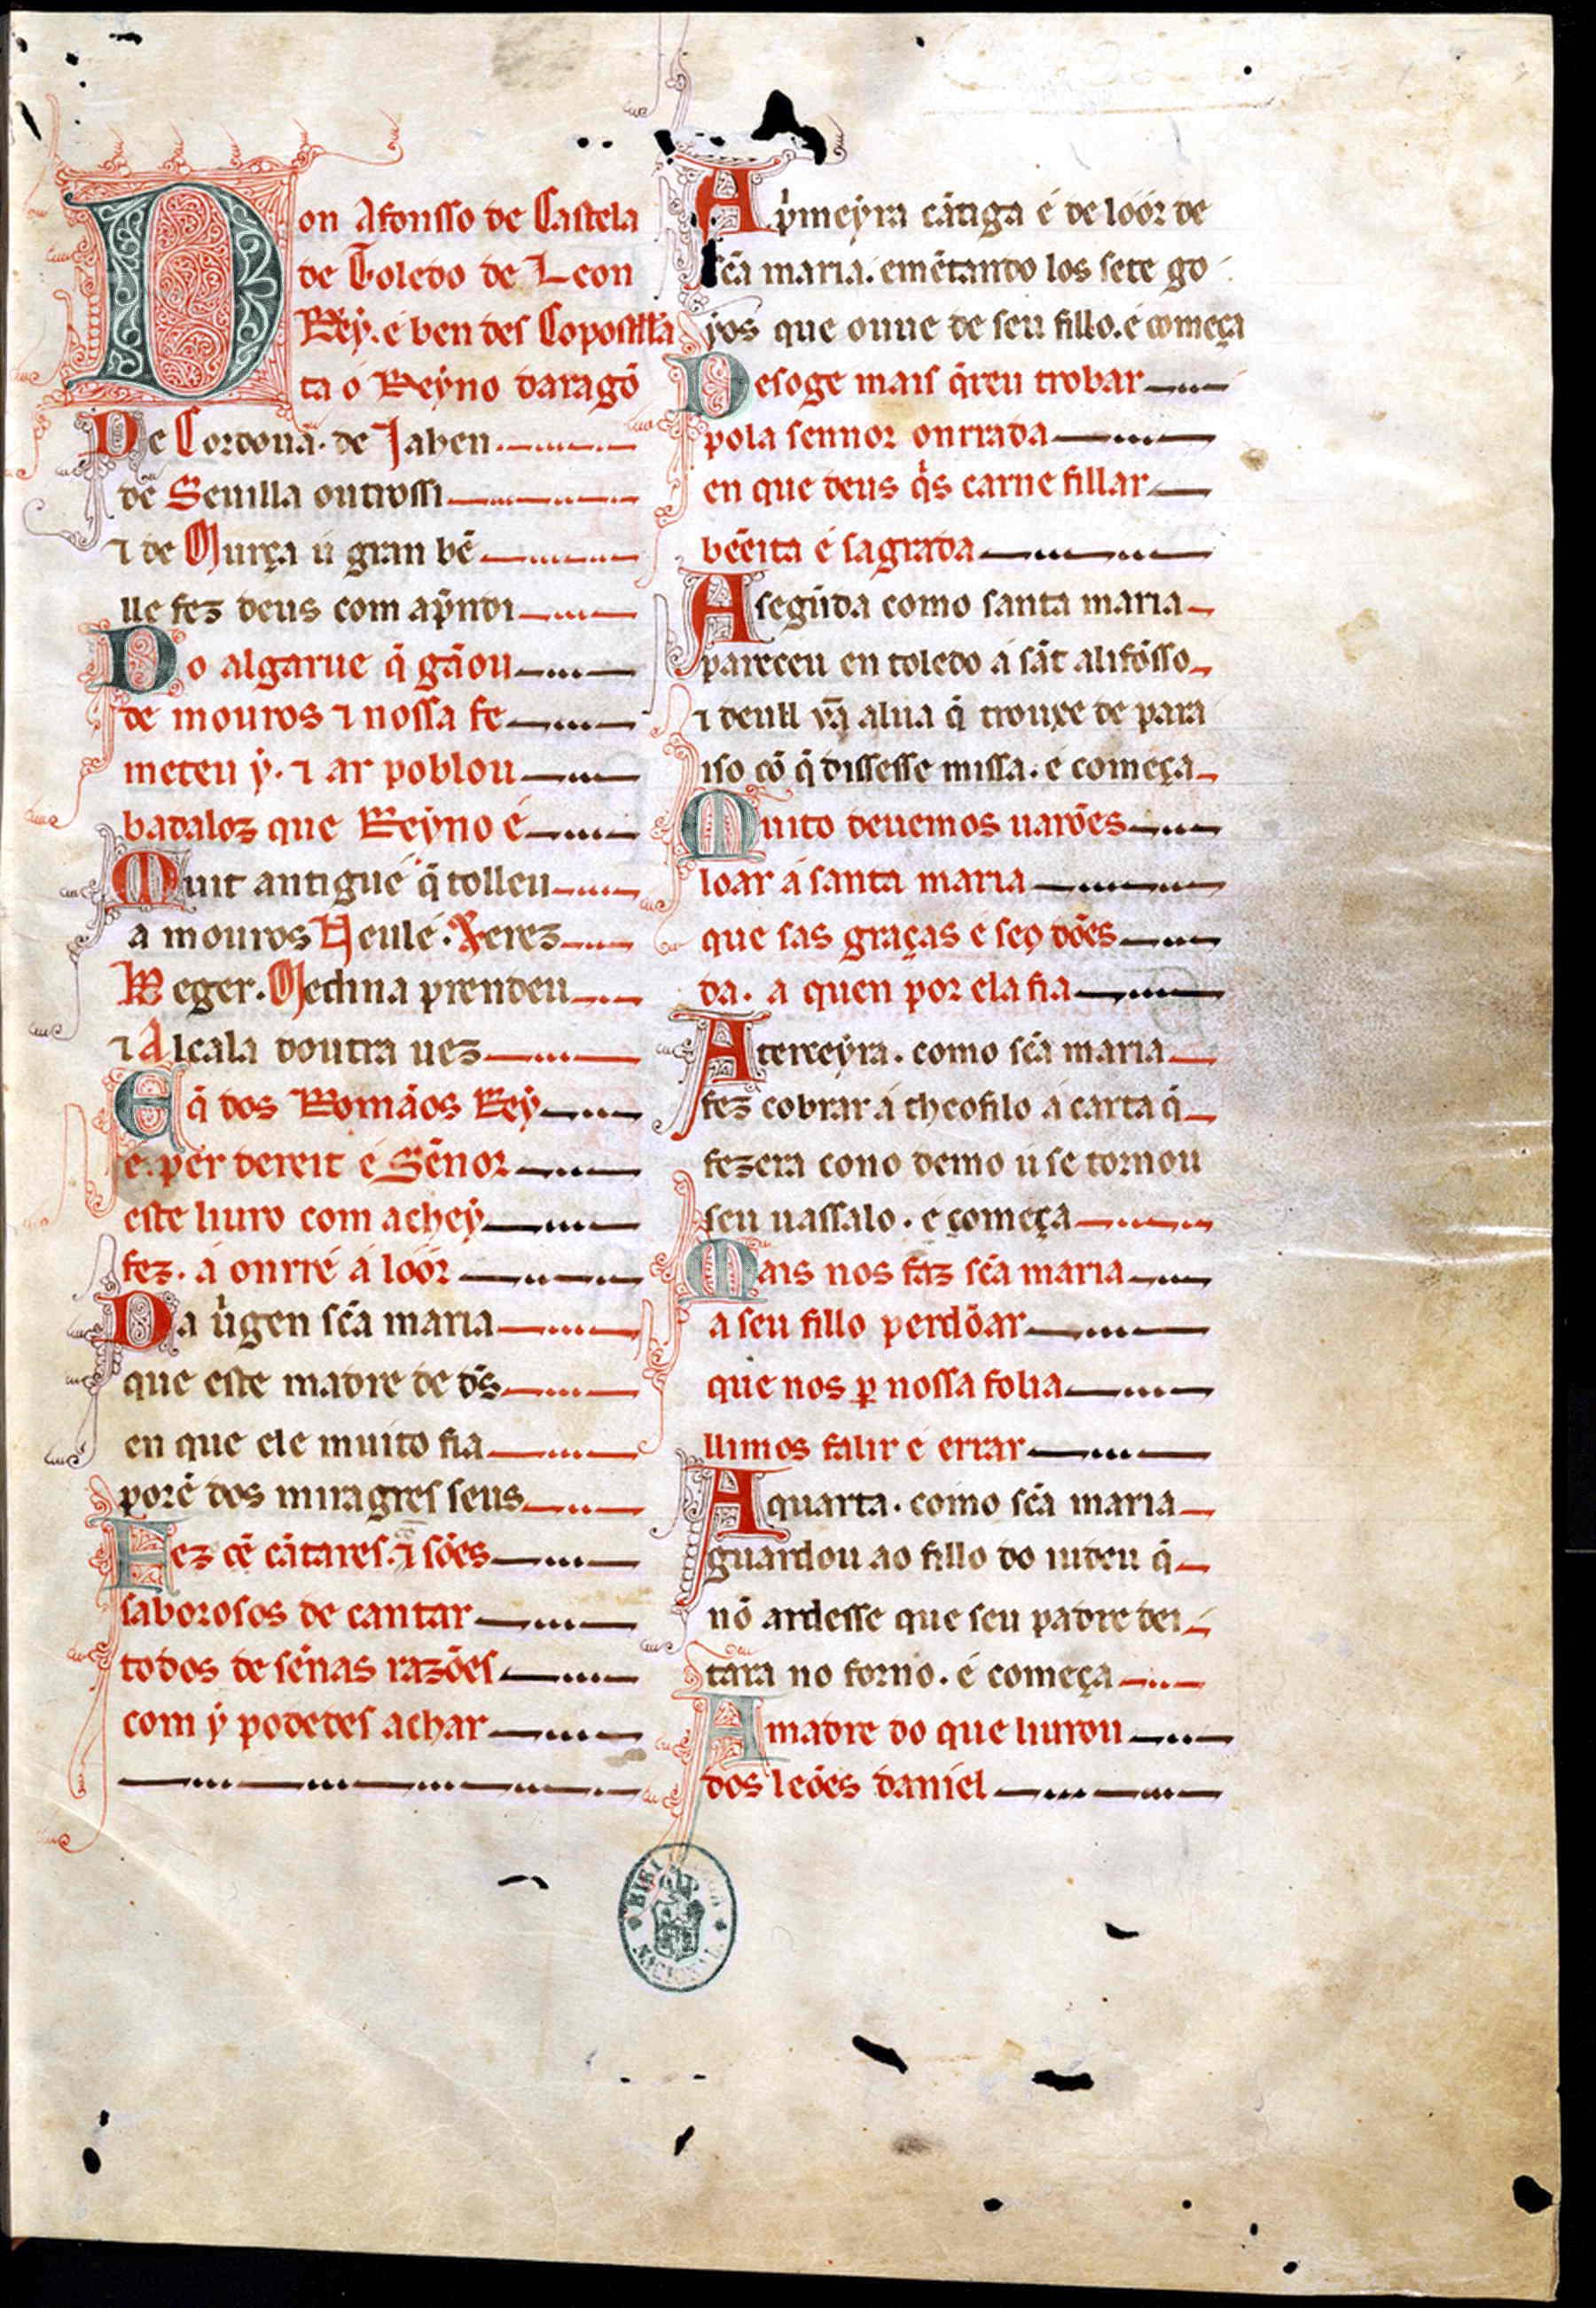 Don Afonsso de Castela
de Toledo de Leon
Rey. e ben des Copostella
ta o Reyno daragõ
De Cordoua. de Jahen
de Seuilla outrossi
⁊ de Murça u gran bẽ
lle fez deus com ap̃ndi
Do algarue q̃ gãou
de mouros ⁊ nossa fe
meteu ẏ. ⁊ ar poblou
badaloz que Reyno é
Muit antigué q̃ tolleu
a mouros Neulé. Xerez
Beger. Medina prendeu
⁊ Alcala doutra uez
E q̃ dos Romãos Reẏ
é. per dereit e Sẽnor
este liuro com acheẏ
fez. á onrré á lóór
Da uͥgen sc̃a maria
que este madre de d̃s
en que ele muito fia
porẽ dos miragres seus
Fez cẽ cãtares. ⁊ sões
saborosos de cantar
todos de sẽnas razões
com ẏ podedes achar
A pͥmeẏra cãtiga é de lóór de
sc̃a maria. emẽtando los sete go
yos que ouue de seu fillo. e começa
Desoge mais q̃reu trobar
pola sennor onrrada
en que deus qͥs carne fillar
bẽeita é sagrada
A segũda como santa maria
pareceu en toledo á sãt alifõsso
⁊ deull ỹa alua q̃ trouxe de para
iso cõ q̃ dissesse missa. e começa
Muito deuemos uarões
loar á santa maria
que sas graças e seꝯ dões
da. a quen por ela fia
A terceẏra. como sc̃a maria
fez cobrar á theofilo á carta q̃
fezera cono demo u se tornou
seu uassalo. e começa
Mais nos faz sc̃a maria
a seu fillo perdõar
que nos ꝑ nossa folia
llimos falir e errar
A quarta. como sc̃a maria
guardou ao fillo do iudeu q̃
nõ ardesse que seu padre dei
tara no forno. é começa
A madre do que liurou
dos leões daniel
BIBLIOTECA NACIONAL